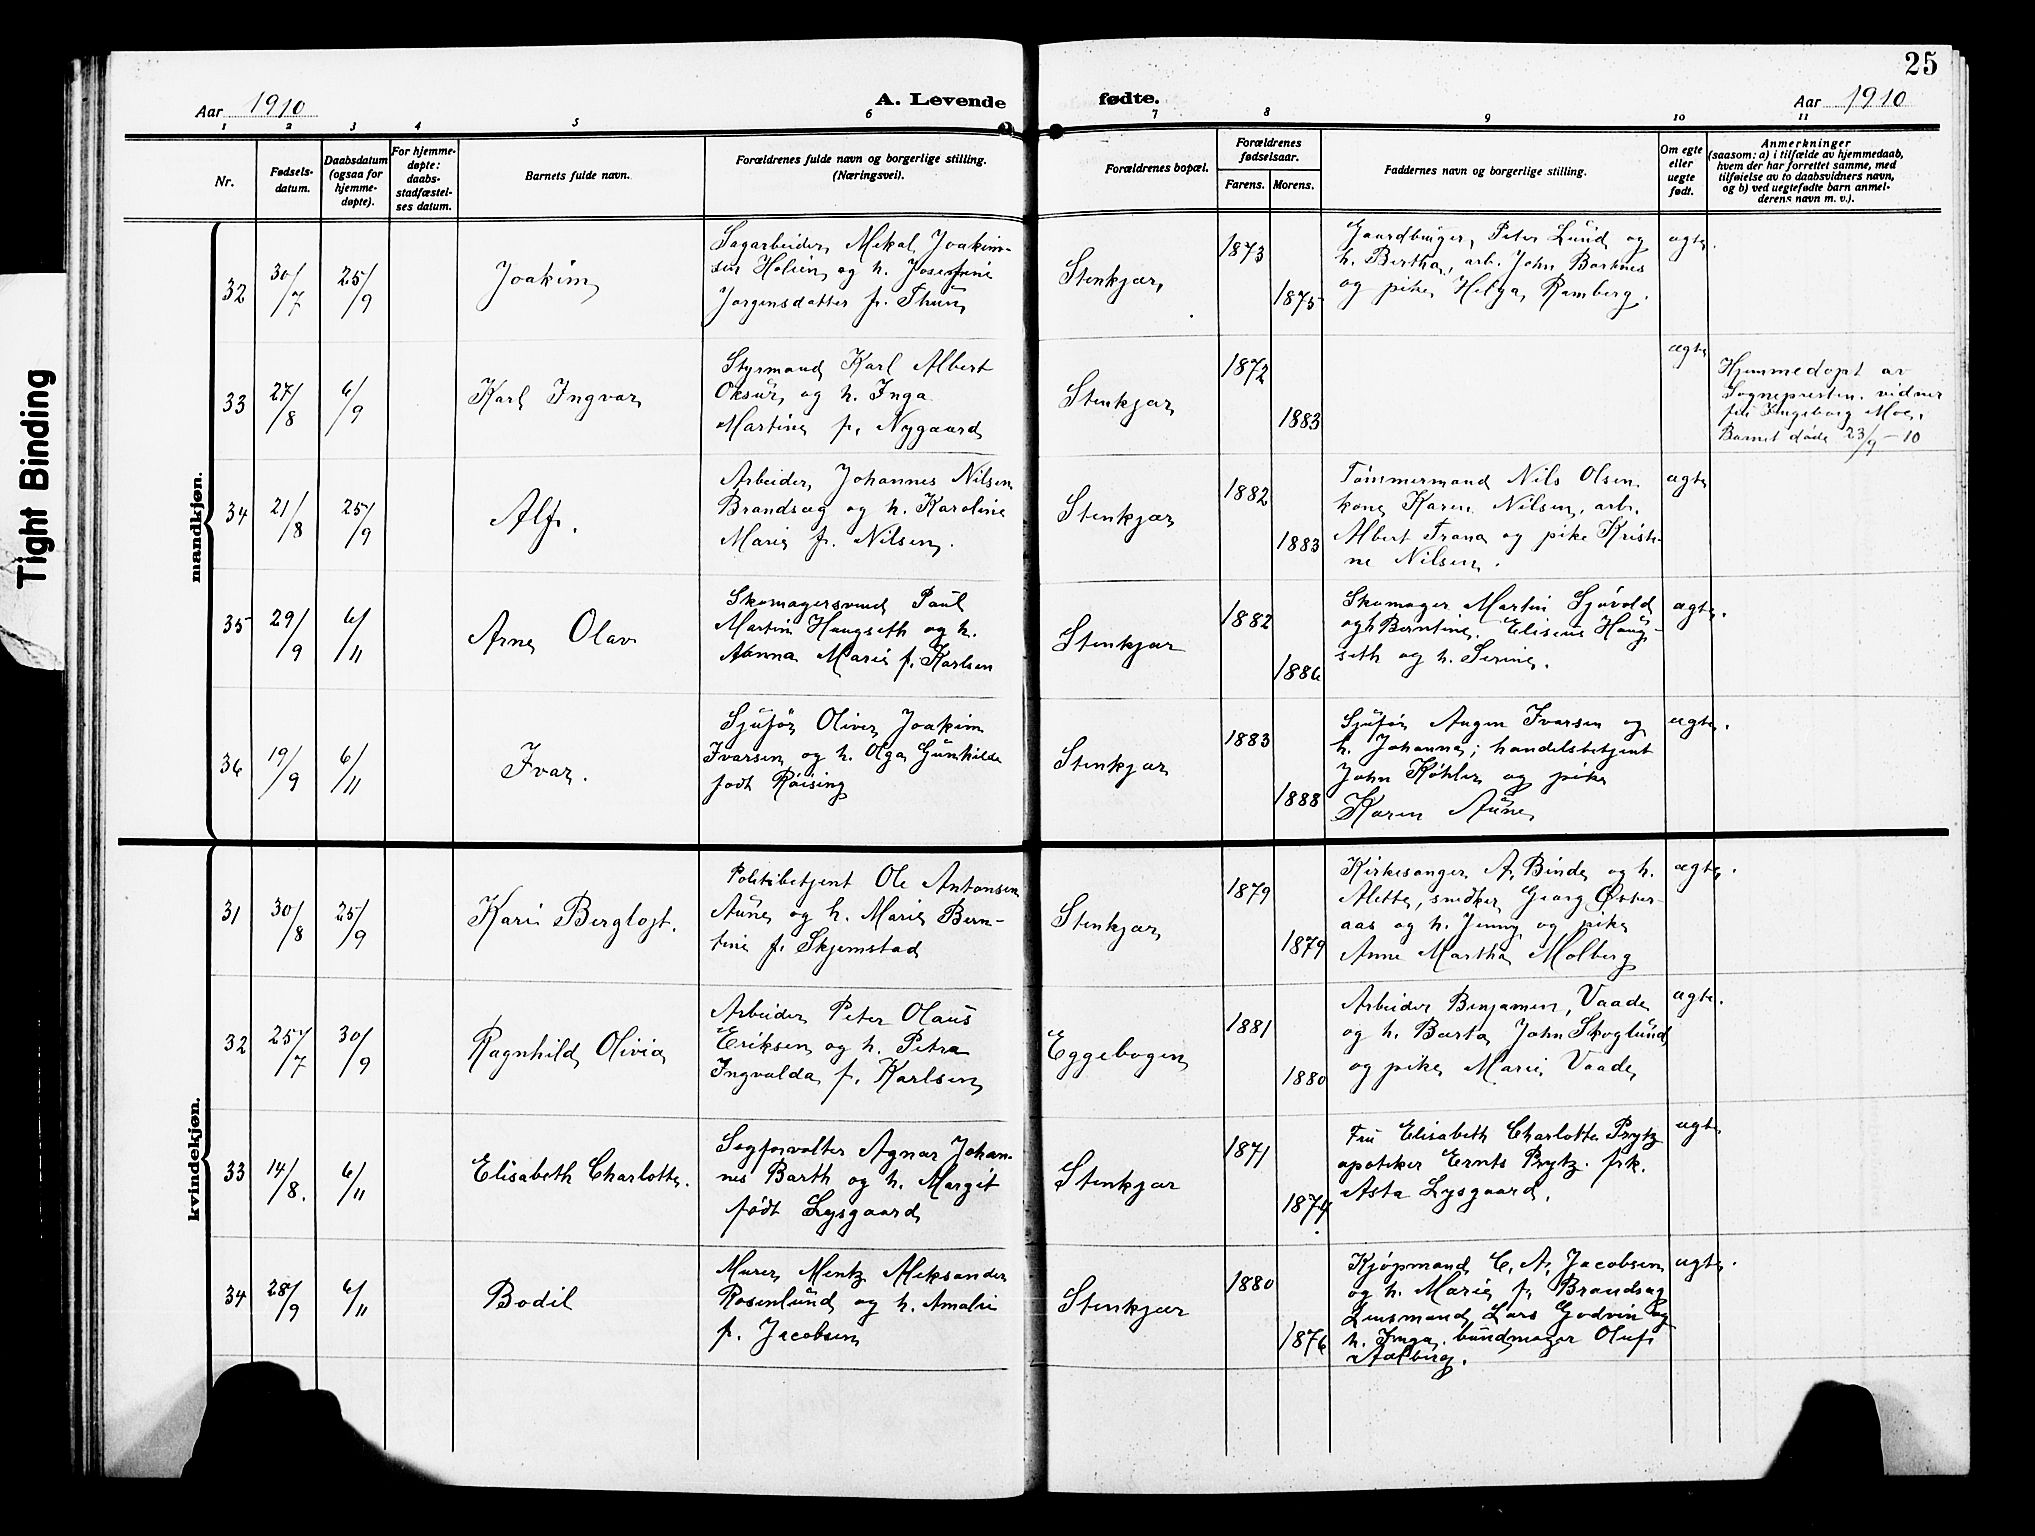 25
Aar 1910
A. Levende
fødte.
Aar 1910
1 2 3 4 5 6 7 8 9 10 11
Nr.
Fødsels-
datum.
Daabsdatum
(ogsaa for
hjemme-
døpte).
For hjemme-
døpte:
daabs-
stadfæstel-
ses datum.
Barnets fulde navn.
Forældrenes fulde navn og borgerlige stilling.
(Næringsvei).
Forældrenes bopæl.
Forældrenes
fødselsaar.
Farens. Morens.
Faddernes navn og borgerlige stilling.
Om egte
eller
uegte
født.
Anmerkninger
(saasom: a) i tilfælde av hjemmedaab,
hvem der har forrettet samme, med
tilføielse av to daabsvidners navn,
og b) ved uegtefødte barn anmel-
derens navn m. v.).
Tight Binding
mandkjøn.
32
30/7
25/9
Joakim
Sagarbeider Mikal Joakim-
sen Holien og h. Josefine
Jørgensdatter f. Thun
Stenkjær
1873
1875
Gaardbruger Peter Lund og
h. Bertha, arb. John Bartnes
og pike Helga Ramberg.
ægte.
33
27/8
6/9
Karl Ingvar
Styrmand Karl Albert
Oksur og h. Inga
Martine f. Nygaard
Stenkjær
1872
1883
ægte
Hjemmedøpt av
Sognepresten. vidner
frk Ingeborg Moe.
Barnet døde 23/9-10
34
21/8
25/9
Alf.
Arbeider Johannes Nilsen
Brandsæg og h. Karoline
Marie f. Nilsen.
Stenkjær
1882
1883
Tømmermand Nils Olsen
kone Karen Nilsen, arb.
Albert Trana og pike Kristi-
ne Nilsen.
ægte
35
29/9
6/11
Arne Olav
Skomagersvend Paul
Martin Haugseth og h.
Anna Marie f. Karlsen
Stenkjær
1882
1886
Skomager Martin Sjøvold
og h Berntine. Eliseus Haug-
seth og h. Serine.
ægte.
36
19/9
6/11
Ivar.
Sjufør Oliver Joakim
Ivarsen og h. Olga Gunhilda
født Røising
Stenkjær
1883
1888
Sjufør Augen Ivarsen og
h. Johanna; handelsbetjent
John Køhler og pike
Karen Aune
ægte.
kvindekjøn.
31
30/8
25/9
Kari Bergliot.
Politibetjent Ole Antonsen
Aune og h. Marie Bern-
tine f. Skjemstad
Stenkjær
1879
1879
Kirkesanger A. Binde og h.
Alette, snedker Georg Øster-
aas og h. Jenny og pike
Anne Martha Molberg
ægte.
32
25/7
30/9
Ragnhild Olivia
Arbeider Peter Olaus
Eriksen og h. Petra
Ingvalda f. Karlsen
Eggebogen
1881
1880
Arbeider Benjamin Vaade
og h. Berta John Skoglund
og pike Marie Vaade
ægte.
33
14/8.
6/11
Elisabeth Charlotte.
Sogforvalter Agnar Johan-
nes Barth og h. Margit
født Lysgaard
Stenkjær
1871
1874
Fru Elisabeth Charlotte Prytz
apotiker Ernts Prytz. frk.
Asta Lysgaard.
ægte
34
28/9
6/11
Bodil
Murer Mentz Aleksander
Rosenlund og h. Amalie
f. Jacobsen
Stenkjær
1880
1876
Kjøpmand C. A. Jacobsen
og h. Marie f. Brandsæg
Lensmand Lars Godvin og
h. Inga. bundmager Oluf
Aalberg.
ægte.